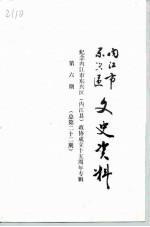 2110
内江市
东兴区
文史资料
纪念内江市东兴区(内江县)政协成立十五周年专辑
第六期
(总第二十二期)